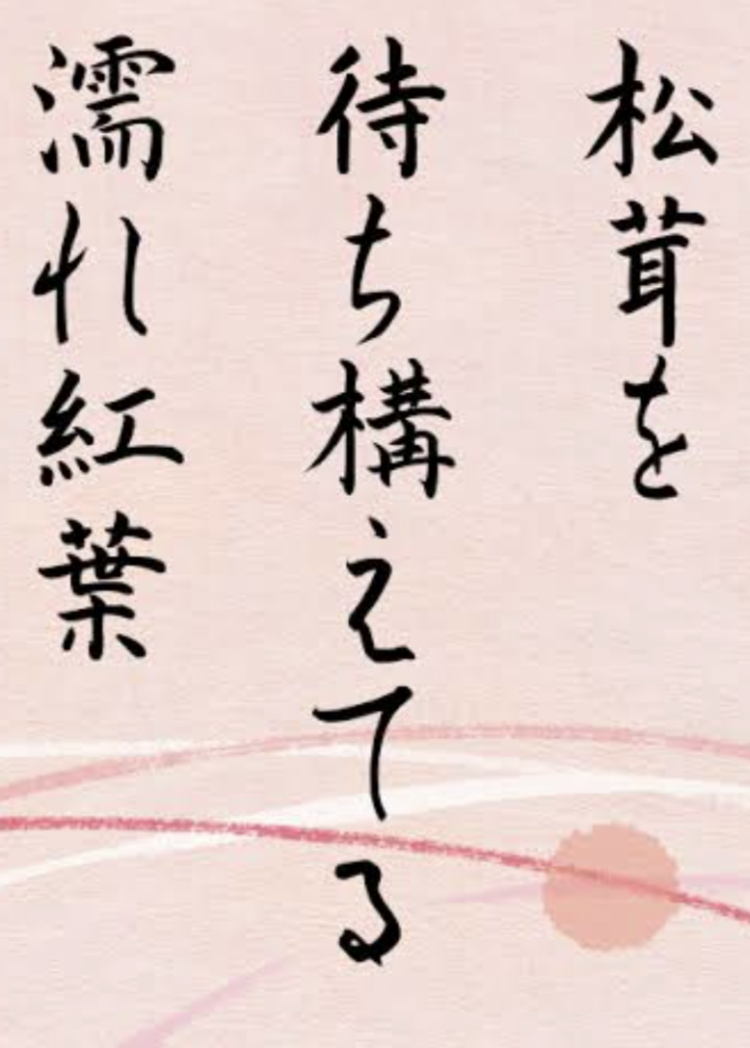 松茸を
待ち構えてる
濡れ紅葉